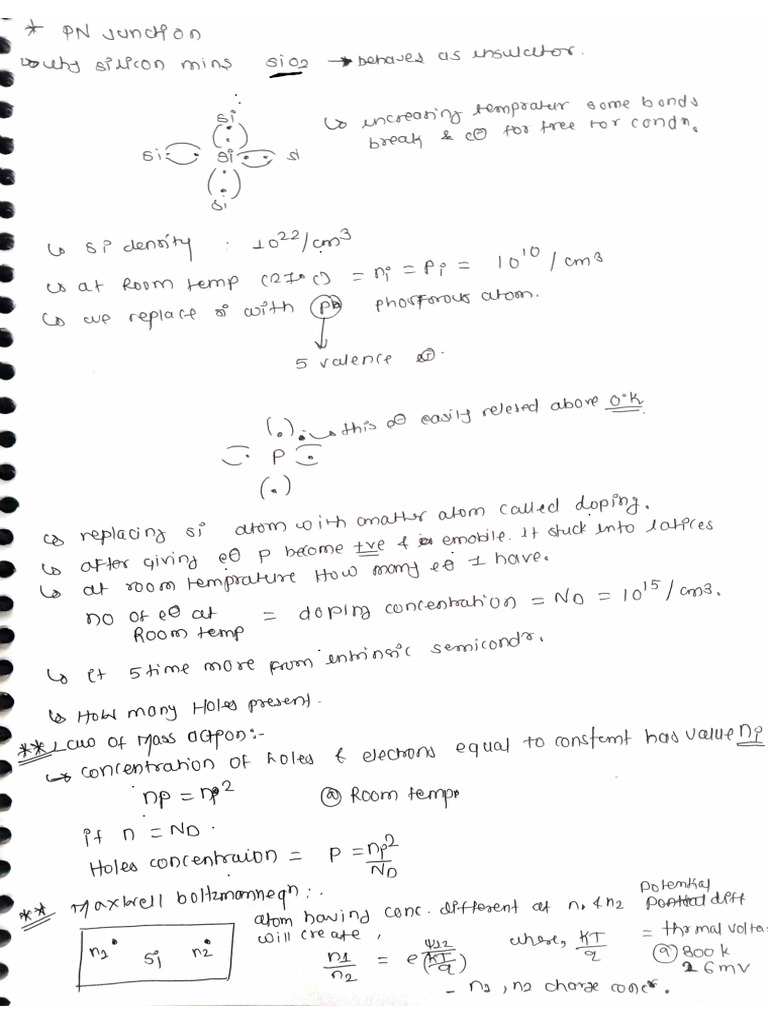 * PN Junction
↳ why silicon mins SiO2 → behaves as insulator.
Si
Si Si Si
Si
↳ increasing tempratur some bonds
break & e⊖ for free for condn.
↳ Si density : 10^22/cm^3
↳ at Room temp (27°c) = ni = Pi = 10^10/cm3
↳ we replace si with phosforous atom.
5 valence e⊖.
this e⊖ easily relesed above 0°K
P
↳ replacing si atom with anather atom called doping.
↳ after giving e⊖ P become +ve & emobile. it stuck into latices
↳ at room temprature How many e⊖ I have.
no of e⊖ at = doping concentration = ND = 10^15/cm3.
Room temp
↳ it 5 time more from intrinsic semicondr.
↳ How many Holes present.
** Law of Mass action:-
↳ concentration of holes & electrons equal to constant has value ni
np = ni^2 @ Room temp.
if n = ND.
Holes concentraion = P = ni^2/ND
** Maxwell boltzmanneqn:-
n1 Si n2
atom having conc. different at n1 & n2 Potential diff
will create,
n1/n2 = e(Ψ12/(KT/q)) where, KT/q = thrmal volta
@ 300 k
26mV
- n1, n2 charge concr.